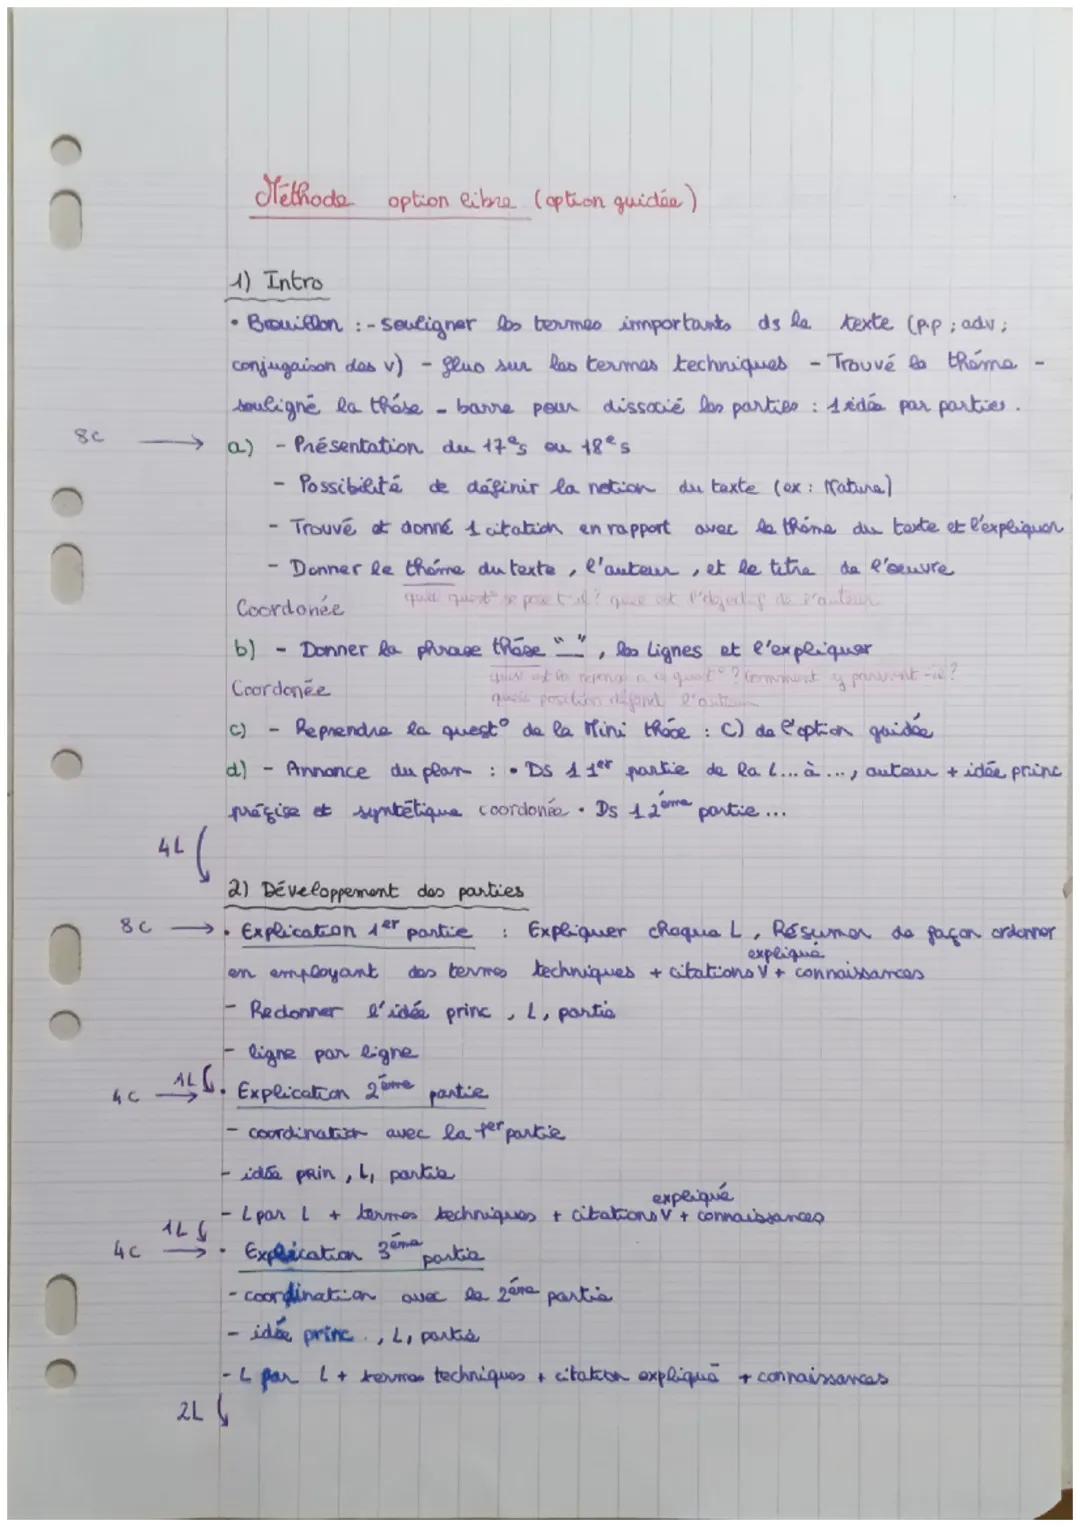 Méthode option libre (option guidée)
1) Intro
• Brouillon : - souligner les termes importants ds le texte (p.p ; adv ;
conjugaison des v) - fluo sur les termes techniques - Trouvé le thème -
souligné la thèse - barre pour dissocié les parties : 1 idée par parties.
8c → a) - Présentation du 17es ou 18es
- Possibilité de définir la notion du texte (ex : Nature)
- Trouvé et donné 1 citation en rapport avec le thème du texte et l'expliquer
- Donner le thème du texte, l'auteur, et le titre de l'oeuvre
Coordonée quel quest° se pose t-il ? quel est l'objectif de l'auteur
b) - Donner la phrase thèse "_", les lignes et l'expliquer
Coordonée quel est la réponse a la quest° ? Comment y parvient-il ?
quelle position défend l'auteur
c) - Reprendre la quest° de la Mini thèse : C) de l'option guidée
d) - Annonce du plan : • Ds 1 1er partie de la L... à ..., auteur + idée princ
précise et syntétique coordonée • Ds 1 2ème partie ...
4L
2) Développement des parties
8c → • Explication 1er partie : Expliquer chaque L, Résumer de façon ordonner
expliqué
en employant des termes techniques + citations V + connaissances
- Redonner l'idée princ, L, partie
- ligne par ligne
1L
4c → • Explication 2ème partie
- coordination avec la 1er partie
- idée prin, L, partie
expliqué
- L par L + termes techniques + citations V + connaissances
1L
4c → • Explication 3ème partie
- coordination avec la 2ème partie
- idée princ., L, partie
- L par L + termes techniques + citation expliqué + connaissances
2L